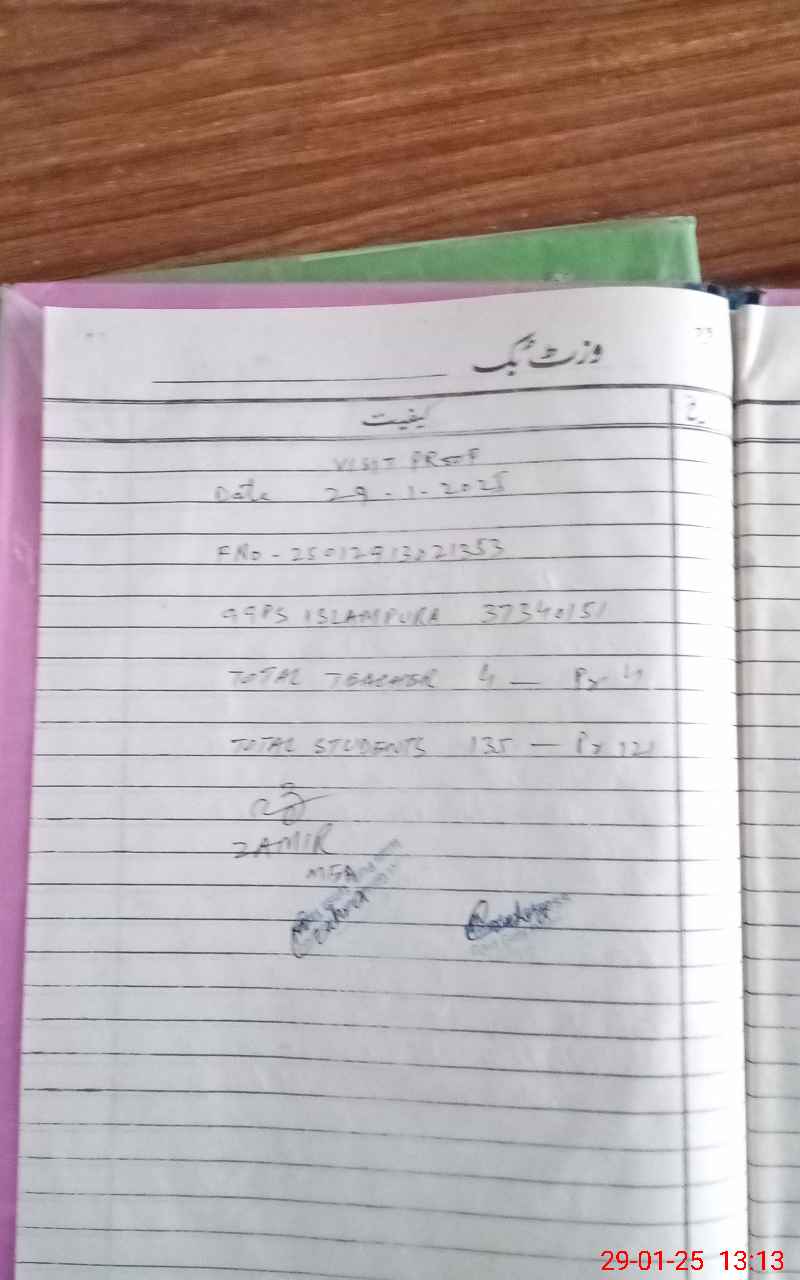 وزٹ بک
کیفیت
VISIT PROOF
Date 29-1-2025
FNo - 25012913021353
GGPS ISLAMPURA 37340151
TOTAL TEACHER 4 — Pr 4
TOTAL STUDENTS 135 — Pr 121
ZAMIR
MEA
29-01-25 13:13